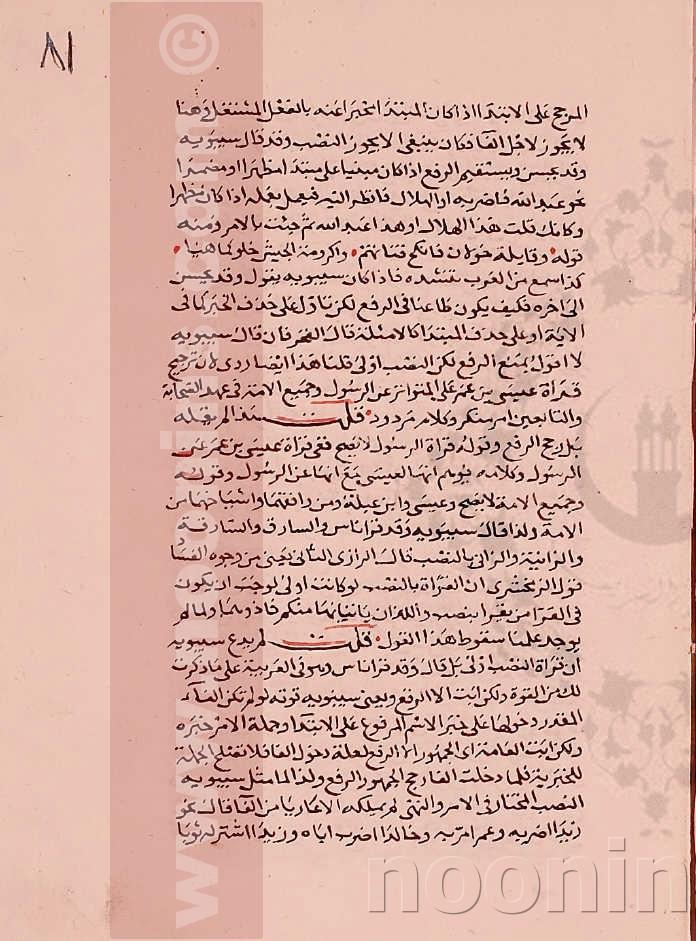 ٨١
المرجح على الابتدا اذا كان المبتدا مخبرا عنه بالفعل المشتغل وهنا
لا يجوز لاجل الفا فكان ينبغى الا يجوز النصب وقد قال سيبويه
وقد يحسن ويستقيم الرفع اذا كان مبنيا على مبتدا مظهرا او مضمرا
نحو عبد الله فاضربه او الهلال فانظر اليه فيعمل بعمله اذا كان مظهرا
وكانك قلت هذا الهلال او هذا عبد الله ثم جئت بالامر ومنه
قوله وقايلة خولان فانكح فتاتهم واكرومة الحيين خلو كما هيا
كذا سمع من العرب تنشده فاذا كان سيبويه يقول وقد يحسن
الى اخره فكيف يكون طاعنا فى الرفع لكن تاول على حذف الخبر كما فى
الاية او على حذف المبتدا كالامثلة قال الفخر فان قال سيبويه
لا اقول يمنع الرفع لكن النصب اولى قلنا هذا ايضا ردى لان ترجيح
قراة عيسى بن عمر على المتواتر عن الرسول وجميع الامة فى عهد الصحابة
والتابعين امر منكر وكلام مردود قلت هذا لم يقله
بل رجح الرفع وقوله قراة الرسول لا يصح ففى قراة عيسى بن عمر عن
الرسول وكلامه يوهم انها لعيسى مع انها عن الرسول وقوله
وجميع الامة لا يصح وعيسى وابن عبلة ومن وافقهما واشياخهما من
الامة ولذا قال سيبويه وقد قرا ناس والسارق والسارقة
والزانية والزانى بالنصب قال الرازى الثانى يعنى من وجوه الفساد
قول الزمخشرى ان القراة بالنصب لو كانت اولى لوجب ان يكون
فى القرا من يقرا بنصب واللذان ياتيانها منكم فاذوهما ولما لم
يوجد علمنا سقوط هذا القول قلت لم يدع سيبويه
ان قراة النصب اولى بل قال وقد قرا ناس وهو فى العربية على ما ذكرت
لك من القوة ولكن ابت الا الرفع ويعنى سيبويه قوته لو لم تكن الفا
المقدر دخولها على خبر الاسم المرفوع على الابتدا وجملة الامر خبره
ولكن ابت العامة اى الجمهور الا الرفع لعلة دخول الفا فلا تصلح الجملة
للخبرية فلما دخلت الفا رجح الجمهور الرفع ولذا لما مثل سيبويه
النصب المختار فى الامر والنهى لم يمثله الا عاريا من الفا قال نحو
زيدا اضربه وعمرا امرر به وخالدا اضرب اباه وزيدا اشتر له ثوبا
noonin